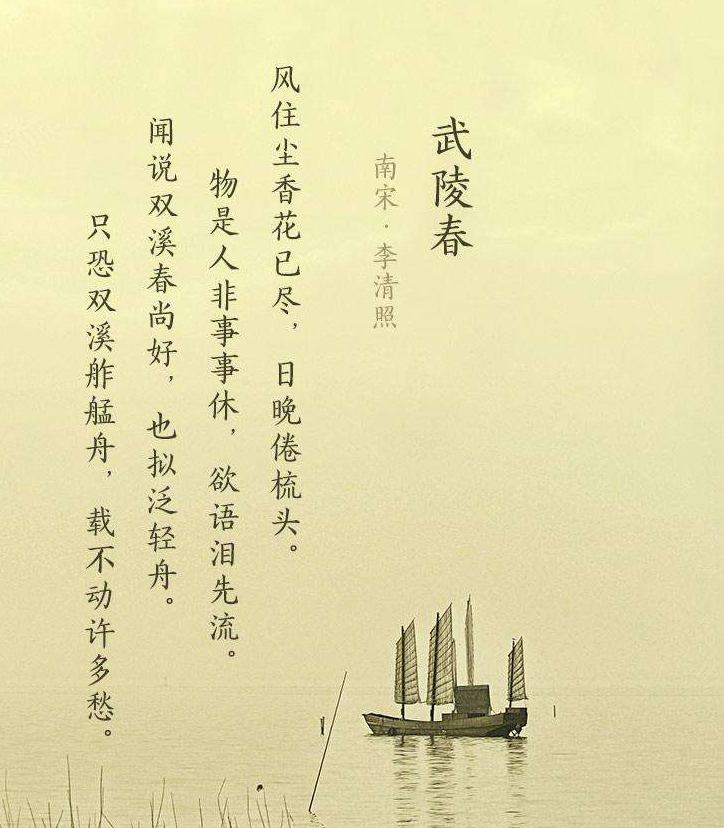 武陵春
南宋·李清照
风住尘香花已尽，日晚倦梳头。
物是人非事事休，欲语泪先流。
闻说双溪春尚好，也拟泛轻舟。
只恐双溪舴艋舟，载不动许多愁。